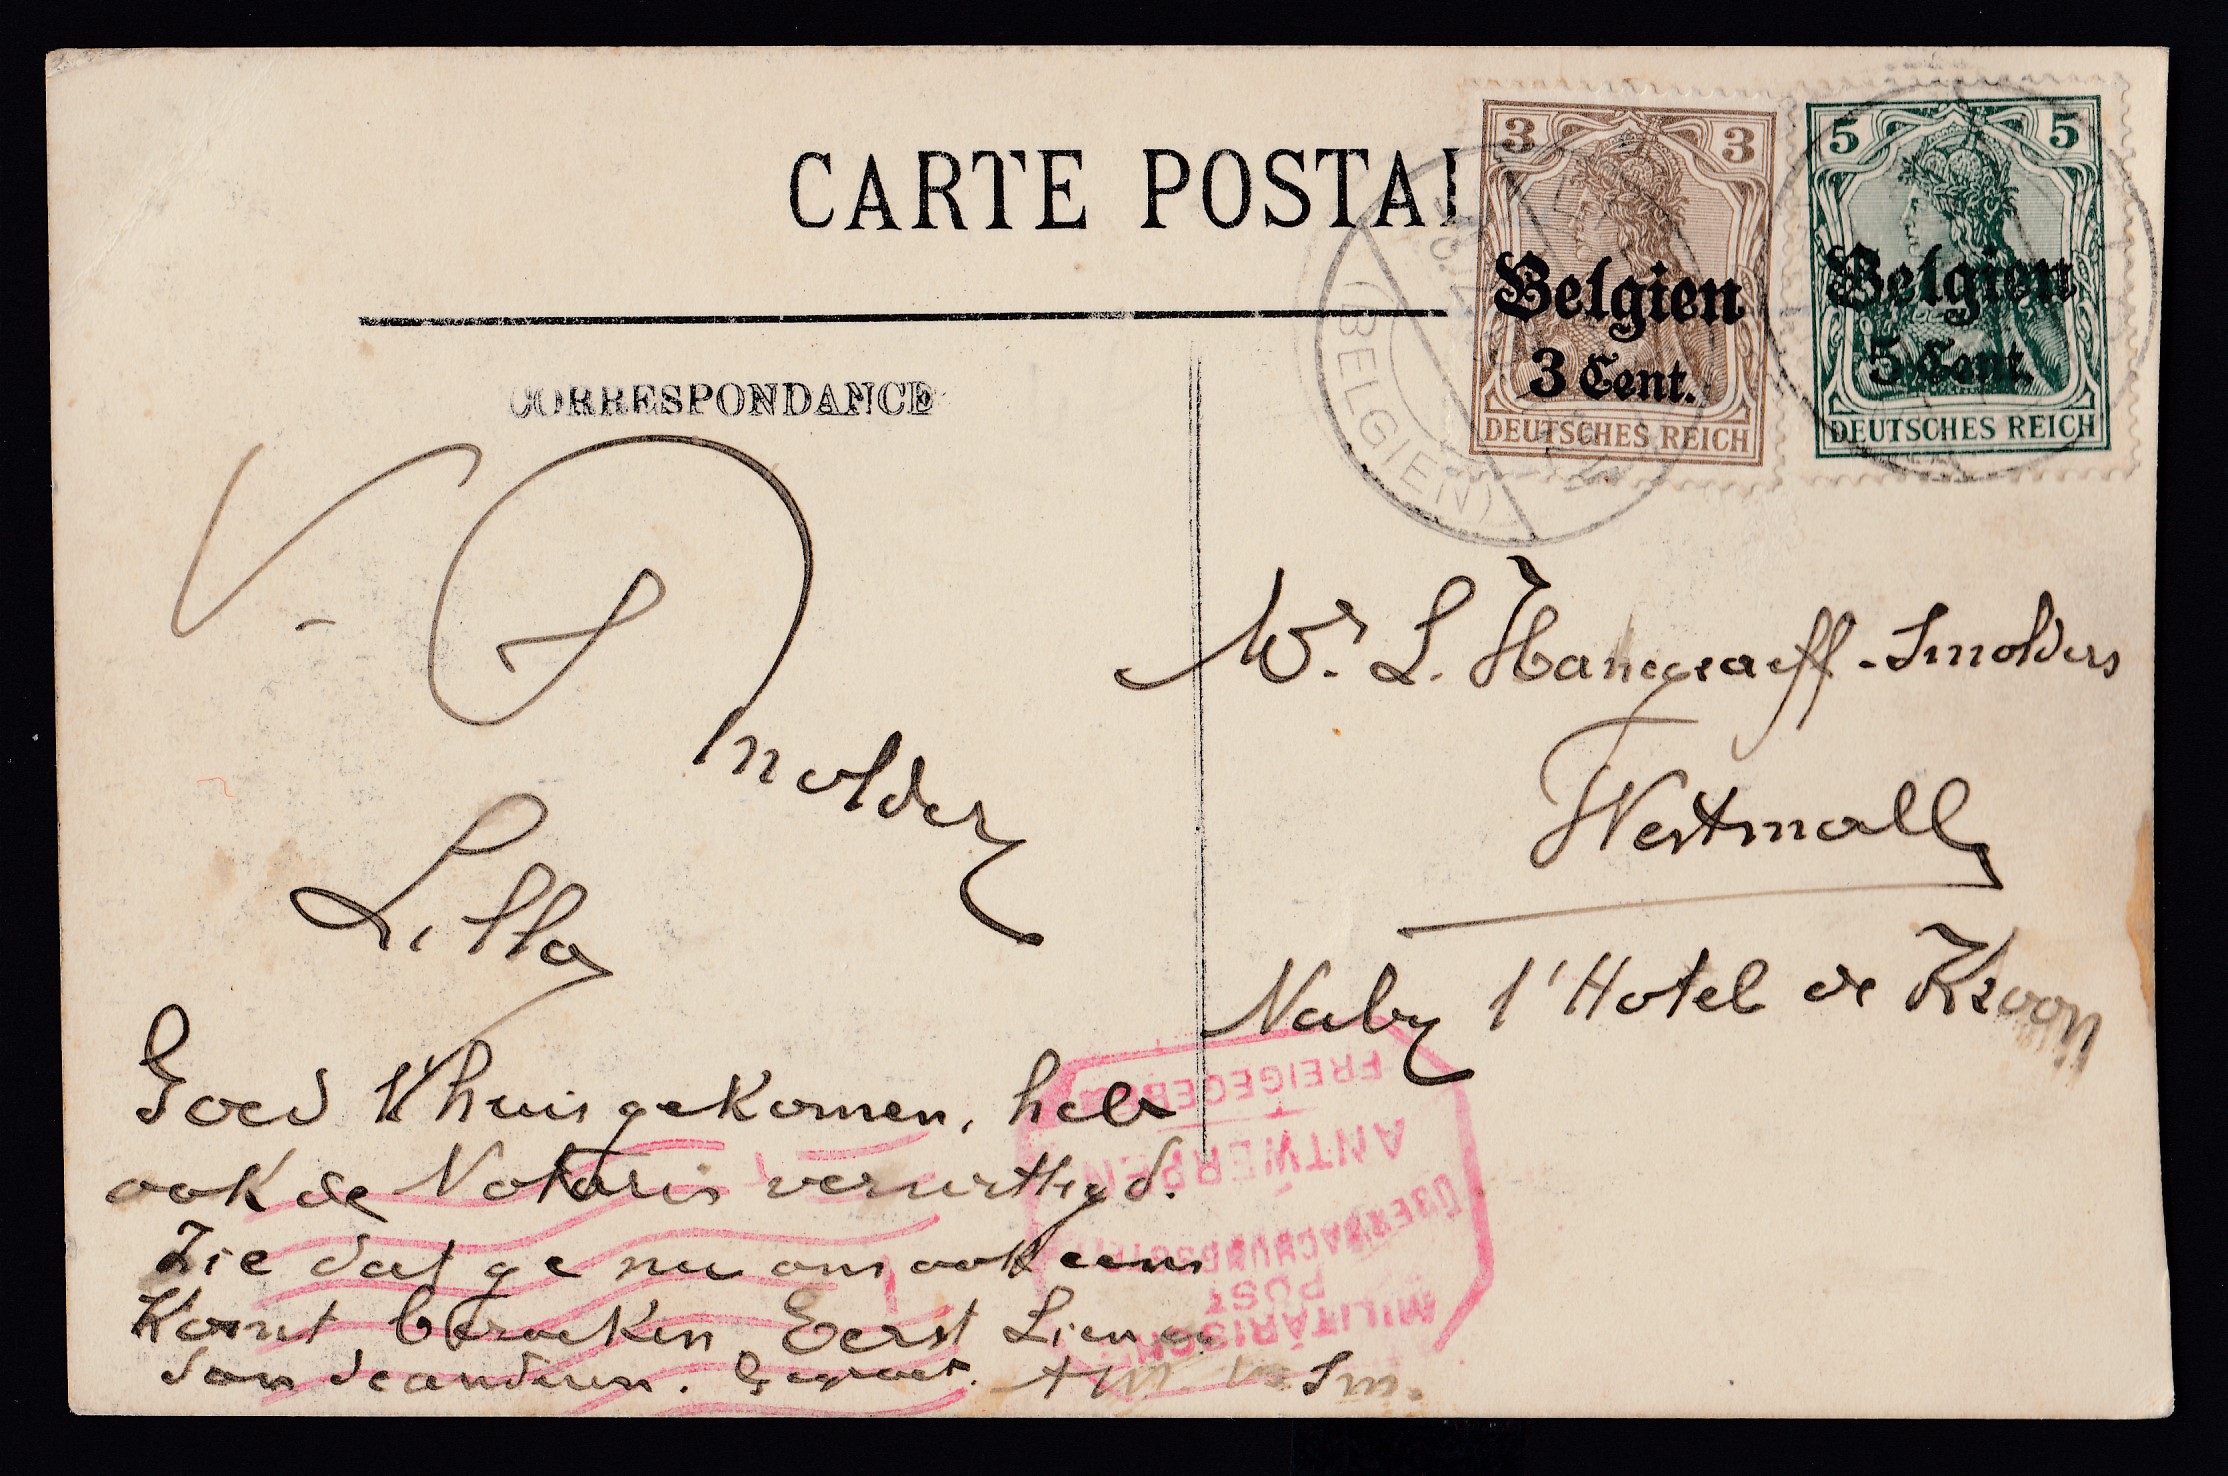 CARTE POSTAL
3 3
Belgien
3 Cent.
DEUTSCHES REICH
5 5
Belgien
5 Cent.
DEUTSCHES REICH
(BELGIEN)
CORRESPONDANCE
V. Smolders
Lillo
Goed t'huis gekomen, heb
ook de Notaris verwittigd.
Zie dat ge nu ons ook eens
Komt bezoeken Eerst Lien
dan de anderen. Gegroet. Sm.
Mr. L. Hanegraeff-Smolders
Westmall
Naby 't Hotel de Kroon
MILITÄRISCHE
POST
ÜBERWACHUNGSSTELLE
ANTWERPEN
FREIGEGEBEN